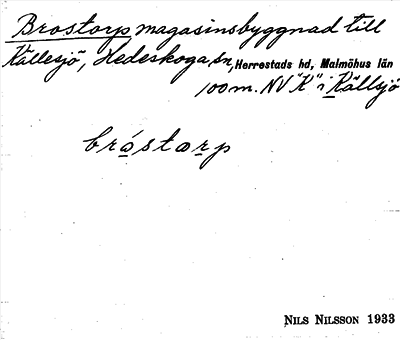 Brostorp magasinsbyggnad till
Källesjö, Hedeskoga sn, Herrestads hd, Malmöhus län
100 m. NV "K" i Källsjö
bróstarp
NILS NILSSON 1933